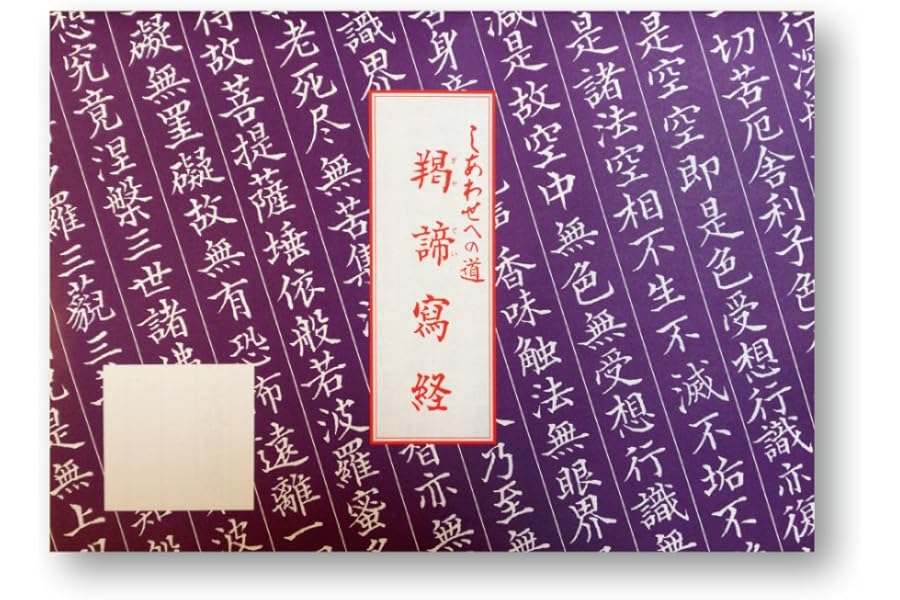 しあわせへの道
羯諦寫経
ぎやてい
行深般
一切苦厄舎利子色不
是空空即是色受想行識亦復
是諸法空相不生不滅不垢不
滅是故空中無色無受想行識無
舌身意
香味触法無眼界
識界
乃至無
老死尽無苦集滅
智亦無
得故菩提薩埵依般若波羅蜜多
礙無罣礙故無有恐怖遠離一
想究竟涅槃三世諸佛
波
羅三藐三
是無上呪